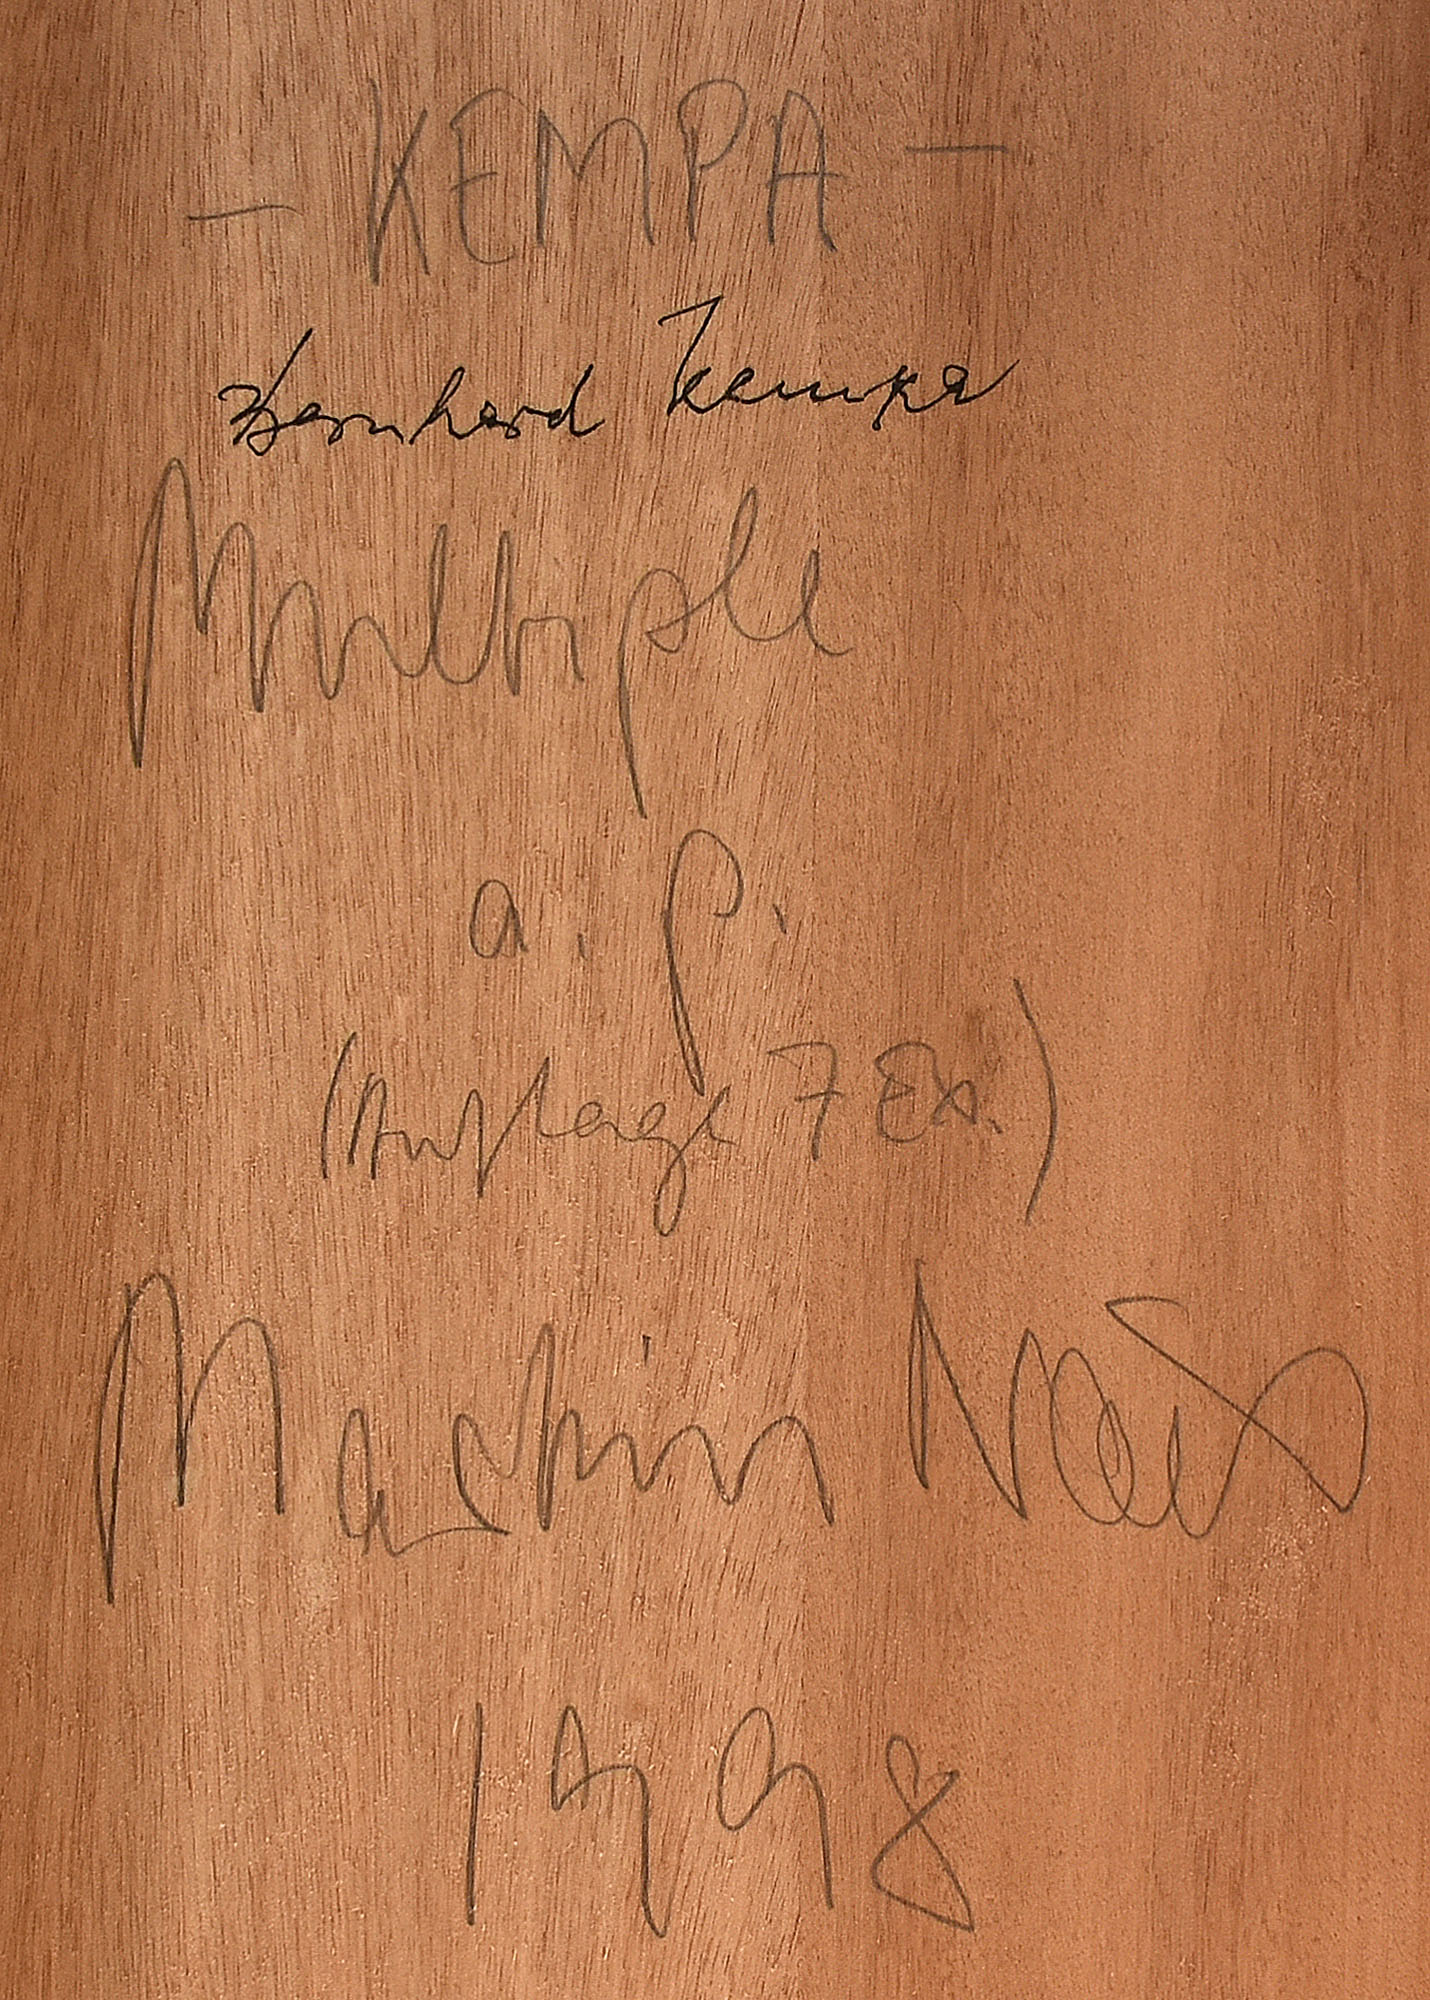 - KEMPA -
Bernhard Kempa
Multiple
a. p.
(Auflage 7 Ex.)
Martin
1998